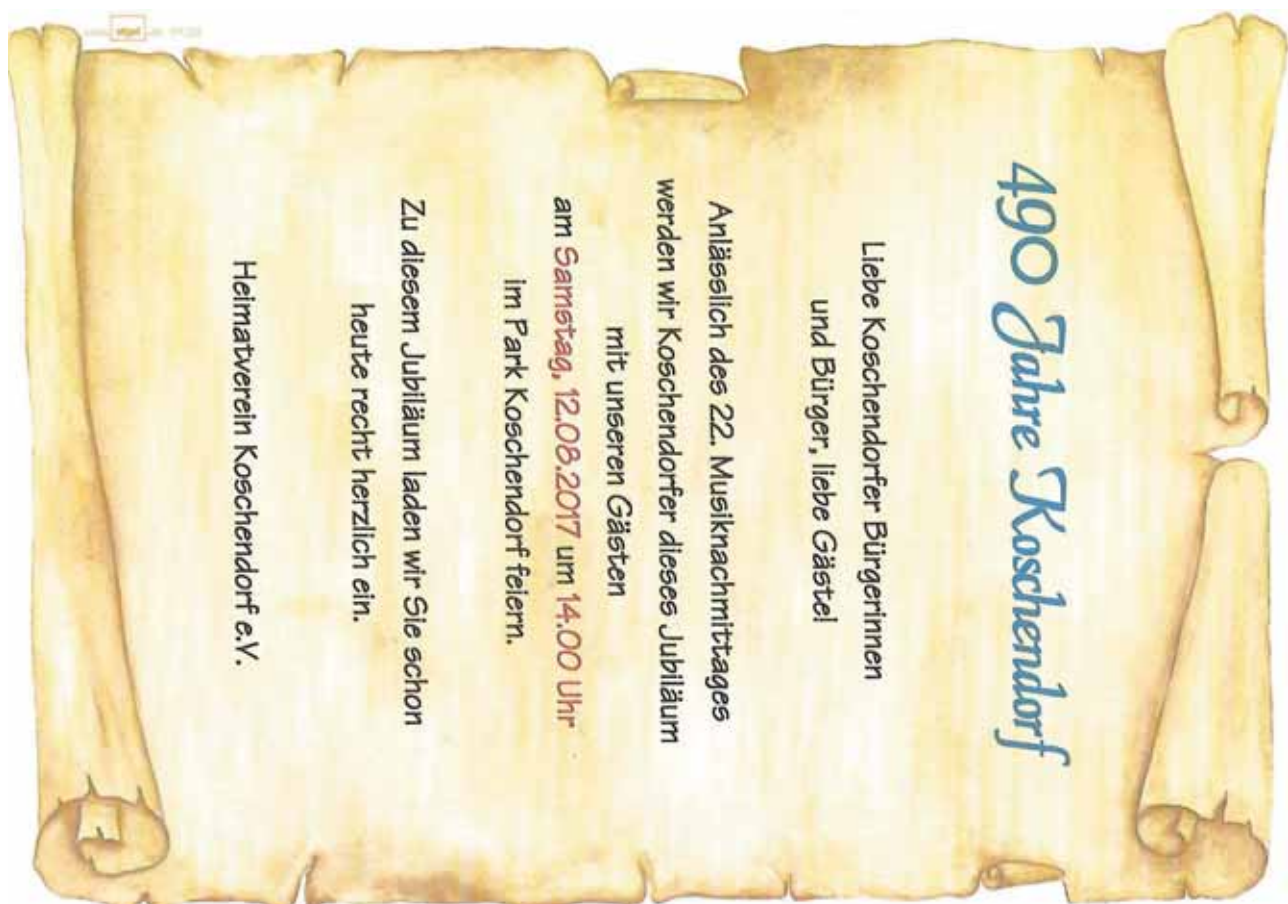 490 Jahre Koschendorf
Liebe Koschendorfer Bürgerinnen
und Bürger, liebe Gäste!
Anlässlich des 22. Musiknachmittages
werden wir Koschendorfer dieses Jubiläum
mit unseren Gästen
am Samstag, 12.08.2017 um 14.00 Uhr
im Park Koschendorf feiern.
Zu diesem Jubiläum laden wir Sie schon
heute recht herzlich ein.
Heimatverein Koschendorf e.V.